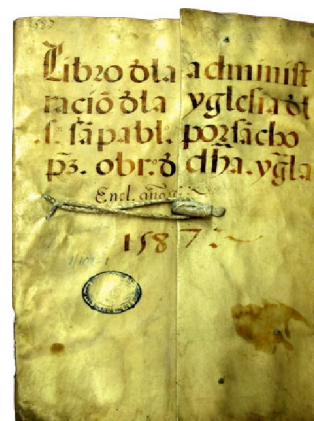 1587
Libro dla administ
raciō dla yglesia dl
s. sā pabl. por sācho
pz. obr. d dha. ygla
Enel. año
1587